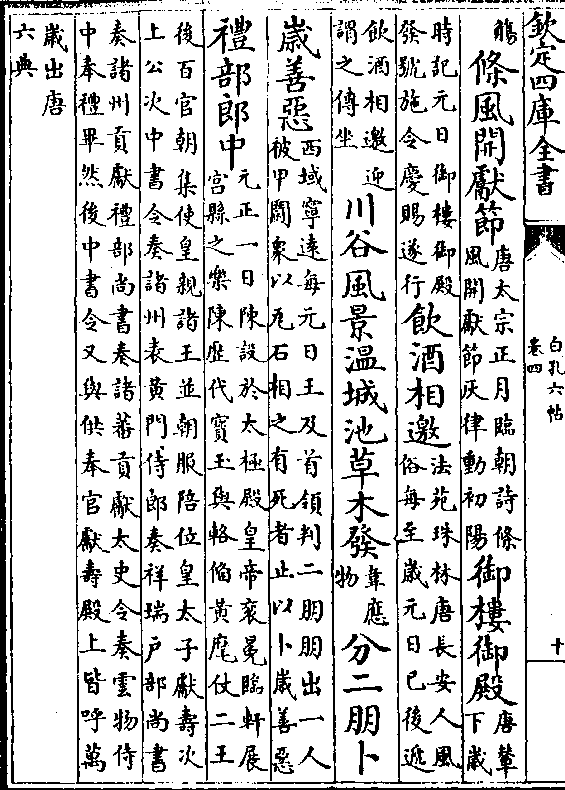 欽定四庫全書
白孔六帖
卷四
十
觴
條風開獻節
唐太宗正月臨朝詩條
風開獻節灰律動初陽
御樓御殿
唐輦
下歲
時記元日御樓御殿
發號施令慶賜遂行
飲酒相邀
法苑珠林唐長安人風
俗每至歲元日已後遞
飲酒相邀迎
謂之傳坐
川谷風景溫城池草木發
韋應
物
分二朋卜
歲善惡
西域寧遠每元日王及首領判二朋朋出一人
被甲鬭衆以瓦石相之有死者止以卜歲善惡
禮部郎中
元正一日陳設於太極殿皇帝衮冕臨軒展
宮縣之樂陳歴代寳玉輿輅備黃麾仗二王
後百官朝集使皇親諸王並朝服陪位皇太子獻壽次
上公次中書令奏諸州表黃門侍郎奏祥瑞户部尚書
奏諸州貢獻禮部尚書奏諸蕃貢獻太史令奏雲物侍
中奉禮畢然後中書令又與供奉官獻壽殿上皆呼萬
歲出唐
六典